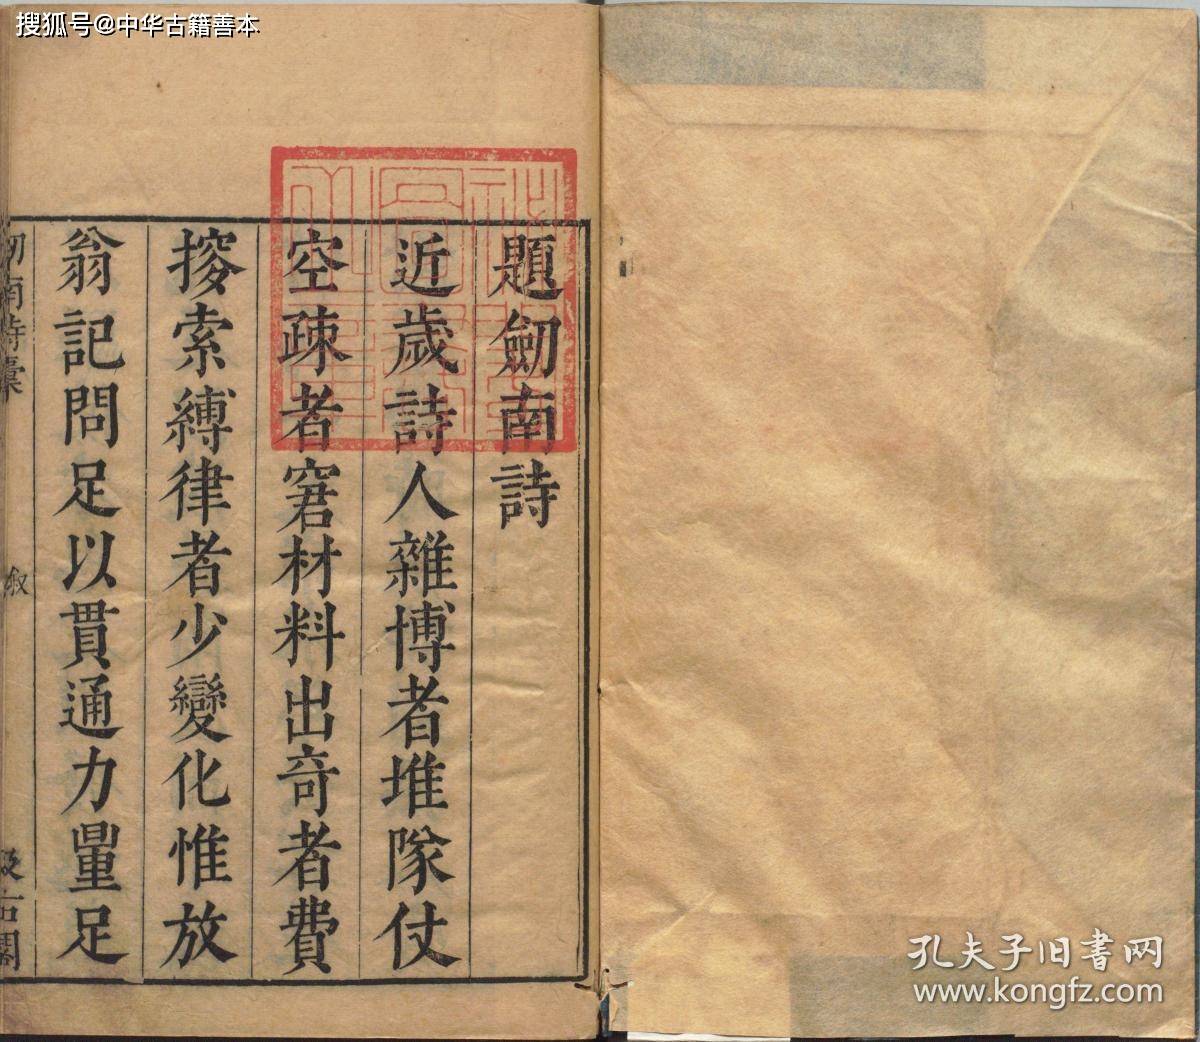 搜狐号@中华古籍善本
題劒南詩
近歲詩人雜博者堆隊仗
空疎者窘材料出奇者費
搜索縛律者少變化惟放
翁記問足以貫通力量足
劒南詩稾
叙
汲古閣
孔夫子旧书网
www.kongfz.com